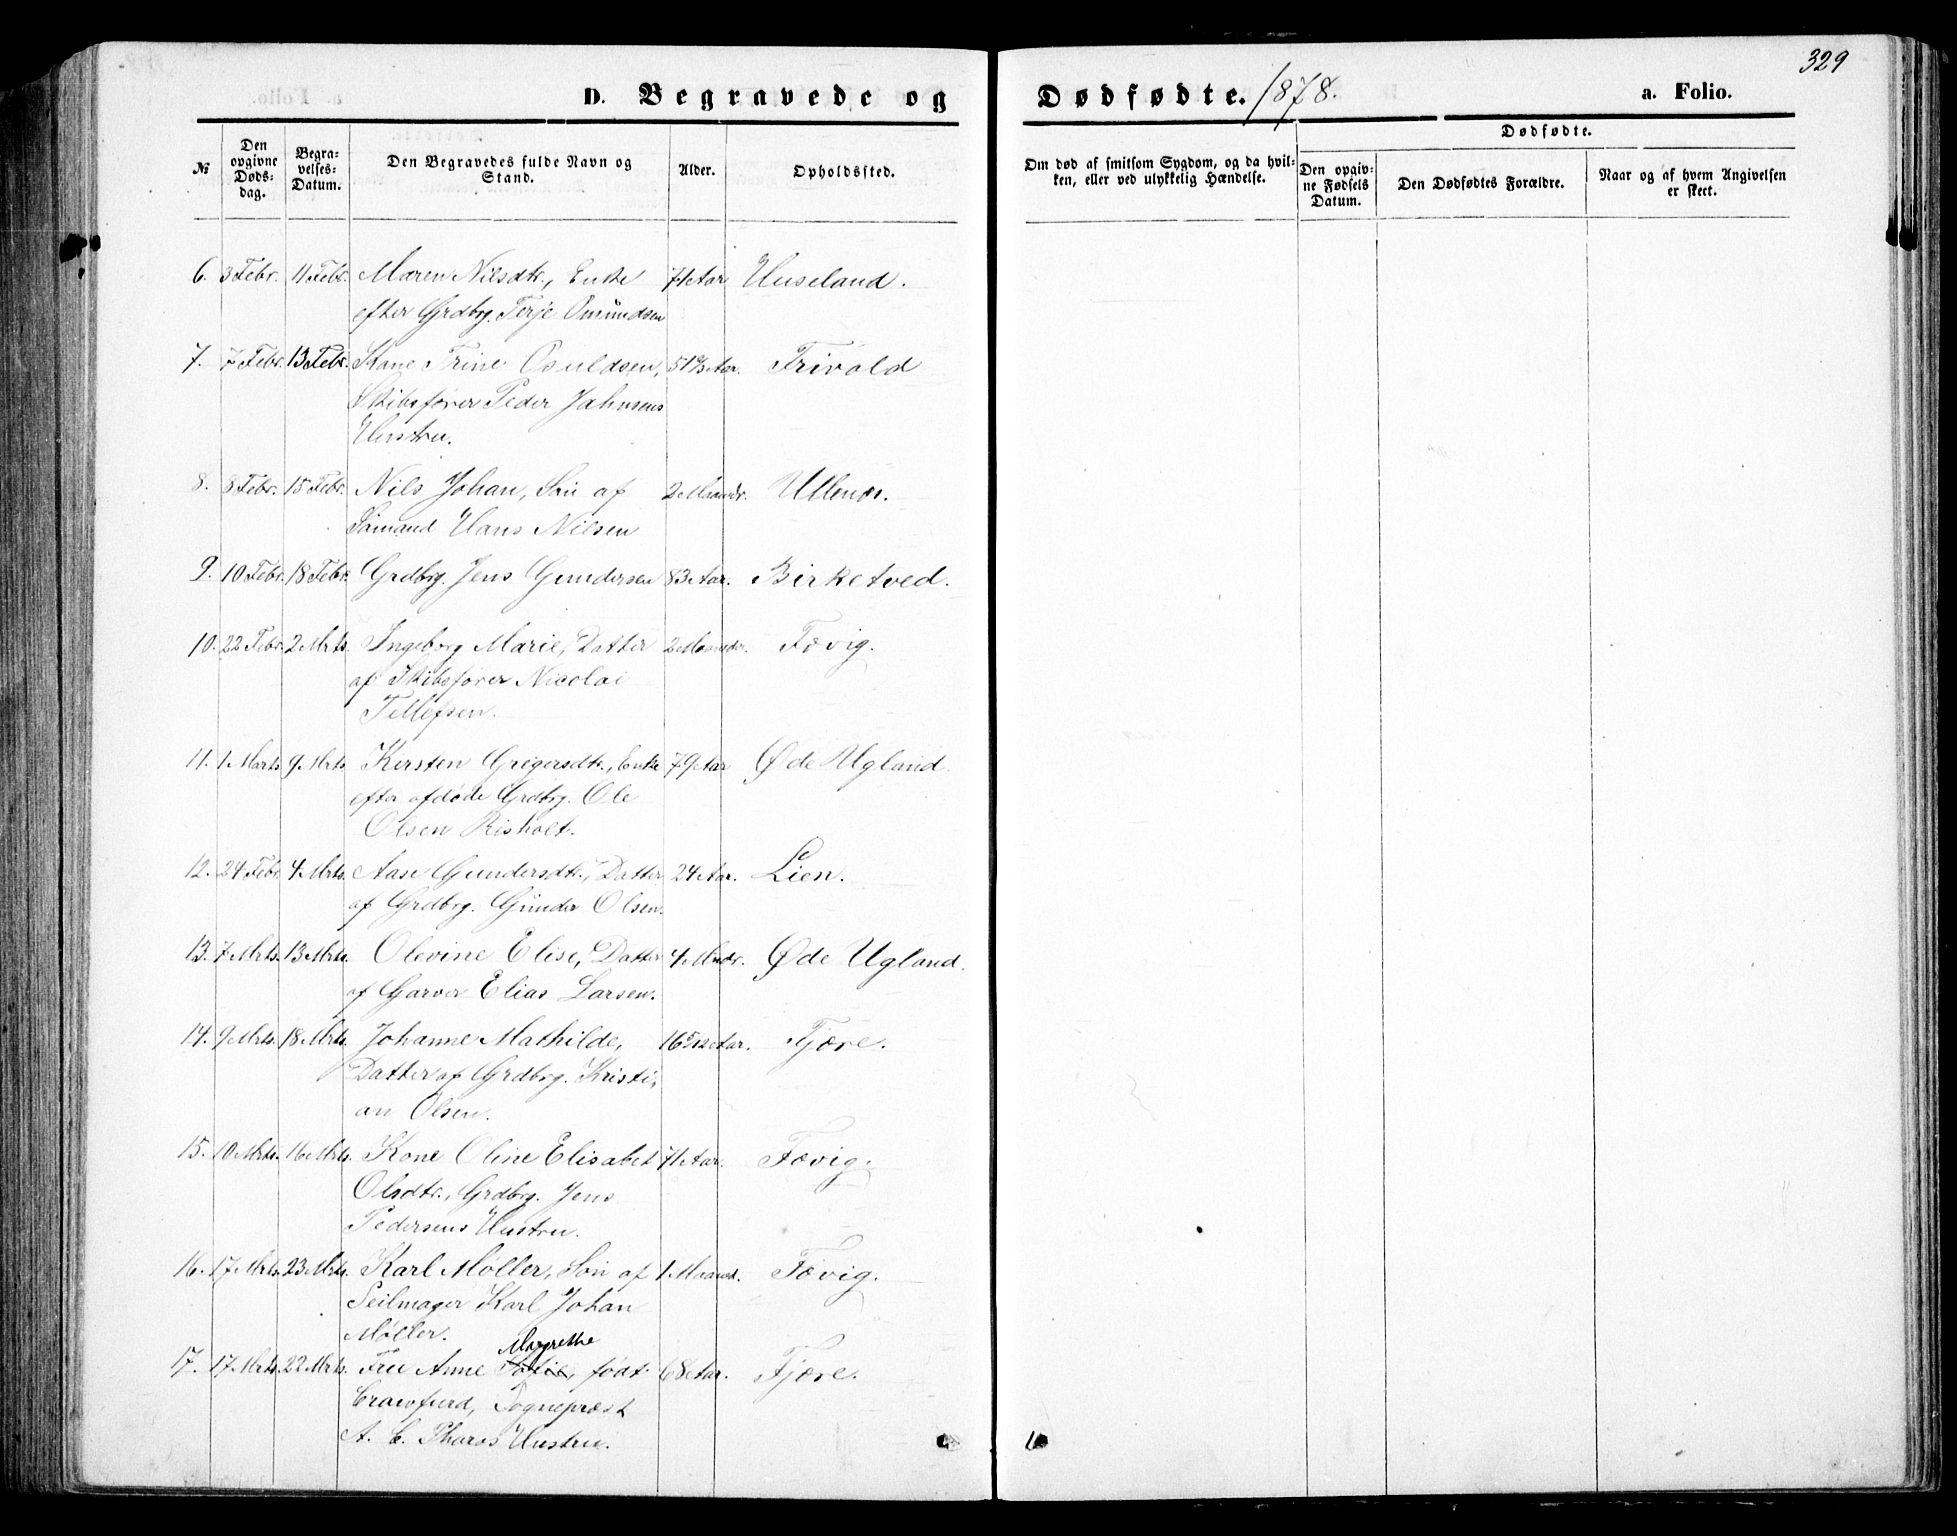 329
D. Begravede og Dødfødte. 1878.
a. Folio.
№
Den opgivne Døds-dag.
Begra-velses-Datum.
Den Begravedes fulde Navn og Stand.
Alder.
Opholdssted.
Om død af smitsom Sygdom, og da hvil-ken, eller ved ulykkelig Hændelse.
Dødfødte.
Den opgiv-ne Fødsels Datum.
Den Dødfødtes Forældre.
Naar og af hvem Angivelsen er skeet.
6. 3 Febr. 11 Febr. Maren Nilsdtr., Enke 71 Aar Huseland.
efter Grdbrg. Terje Omundsen
7. 7 Febr. 13 Febr. Kone Trine Osuldsen, 51 Aar. Trivold
Skibsfører Peder Jahnsens
Hustru.
8. 8 Febr. 15 Febr. Nils Johan, Søn af 2 Maandr. Ullenær.
Sømand Hans Nilsen
9. 10 Febr. 18 Febr. Grdbrg. Jens Gundersen 83 Aar. Birketved.
10. 22 Febr. 2 Mrts. Ingeborg Marie, Datter 2 Maander. Fævig.
af Skibsfører Nicolai
Tellefsen.
11. 1 Marts 9 Mrts Kersten Grigersdtr., Enke 79 Aar Øde Ugland.
efter afdøde Grdbrg. Ole
Olsen Risholt.
12. 24 Febr. 4 Mrts. Aase Gundersdtr., Datter 24 Aar. Lien.
af Grdbrg. Gunder Olsen.
13. 7 Mrts. 13 Mrts. Olevine Elise, Datter 4 Mndr. Øde Ugland.
af Garver Elias Larsen.
14. 9 Mrts. 18 Mrts. Johanne Mathilde, 16 5/12 Aar. Fjære.
Datter af Grdbrg. Kristi,
an Olsen.
15. 10 Mrts. 16 Mrts. Kone Oline Elisabet 71 Aar. Fævig.
Olsdtr., Grdbrg. Jens
Pedersens Hustru.
16. 17 Mrts. 23 Mrts. Karl Møller, Søn af 1 Maaned. Fævig.
Seilmager Karl Johan
Møller.
Margrethe
17. 17 Mrts. 22 Mrts. Fru Anne Sofie, født 68 Aar. Fjære.
Crawfurd, Sogneprest
A. C. Tharos Hustru.